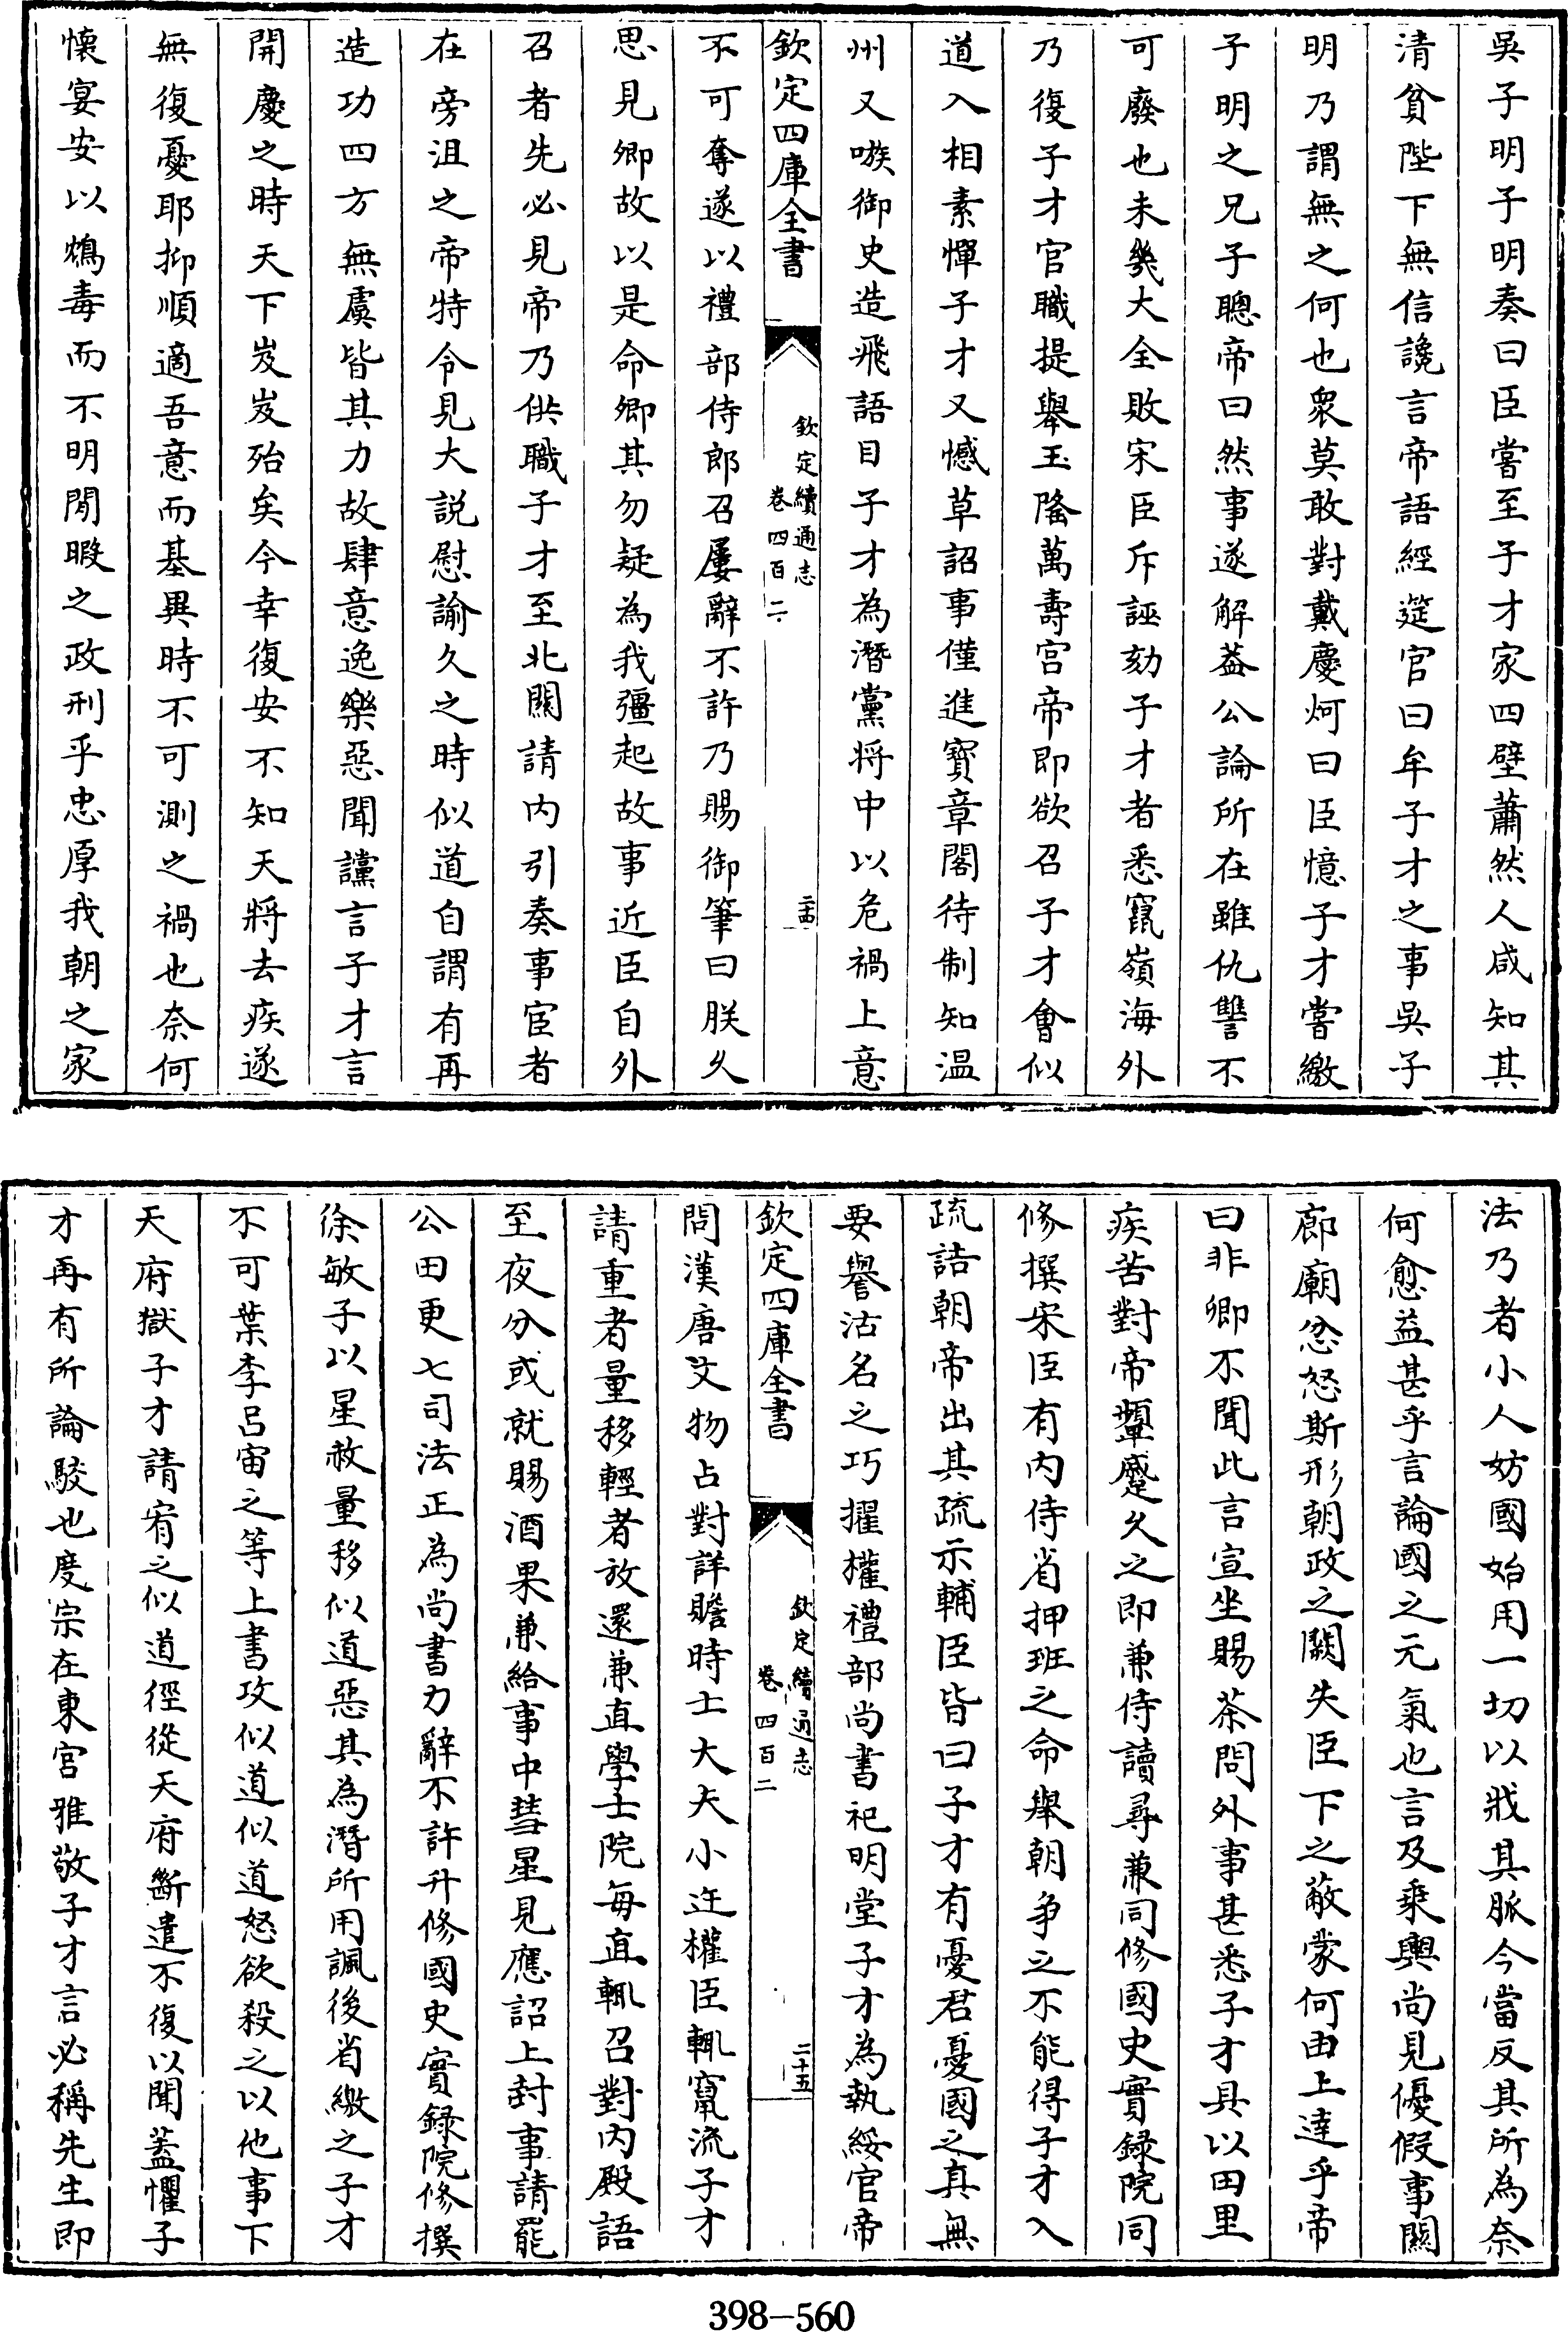 吳子明子明奏曰臣嘗至子才家四壁蕭然人咸知其
清貧陛下無信讒言帝語經筵官曰牟子才之事吳子
明乃謂無之何也衆莫敢對戴慶炣曰臣憶子才嘗繳
子明之兄子聰帝曰然事遂解葢公論所在雖仇讐不
可廢也未幾大全敗宋臣斥誣劾子才者悉竄嶺海外
乃復子才官職提舉玉隆萬壽宫帝即欲召子才會似
道入相素憚子才又憾草詔事僅進寶章閣待制知温
州又嗾御史造飛語目子才為潛黨將中以危禍上意
欽定四庫全書
欽定續通志
卷四百二
二十四
不可奪遂以禮部侍郎召屢辭不許乃賜御筆曰朕久
思見卿故以是命卿其勿疑為我彊起故事近臣自外
召者先必見帝乃供職子才至北闗請内引奏事宦者
在旁沮之帝特令見大説慰諭久之時似道自謂有再
造功四方無虞皆其力故肆意逸樂惡聞讜言子才言
開慶之時天下岌岌殆矣今幸復安不知天將去疾遂
無復憂耶抑順適吾意而基異時不可測之禍也奈何
懐宴安以鴆毒而不明閒暇之政刑乎忠厚我朝之家
法乃者小人妨國始用一切以戕其脈今當反其所為奈
何愈益甚乎言論國之元氣也言及乗輿尚見優假事關
廊廟忿怒斯形朝政之闕失臣下之蔽蒙何由上達乎帝
曰非卿不聞此言宣坐賜茶問外事甚悉子才具以田里
疾苦對帝顰蹙久之即兼侍讀尋兼同修國史實録院同
修撰宋臣有内侍省押班之命舉朝争之不能得子才入
疏詰朝帝出其疏示輔臣皆曰子才有憂君憂國之真無
要譽沽名之巧擢權禮部尚書祀明堂子才為執綏官帝
欽定四庫全書
欽定續通志
卷四百二
二十五
問漢唐文物占對詳贍時士大夫小迕權臣輒竄流子才
請重者量移輕者放還兼直學士院每直輒召對内殿語
至夜分或就賜酒果兼給事中彗星見應詔上封事請罷
公田更七司法正為尚書力辭不許升修國史實録院修撰
徐敏子以星赦量移似道惡其為潛所用諷後省繳之子才
不可葉李吕宙之等上書攻似道似道怒欲殺之以他事下
天府獄子才請宥之似道徑從天府斷遣不復以聞蓋懼子
才再有所論駁也度宗在東宫雅敬子才言必稱先生即
398-560